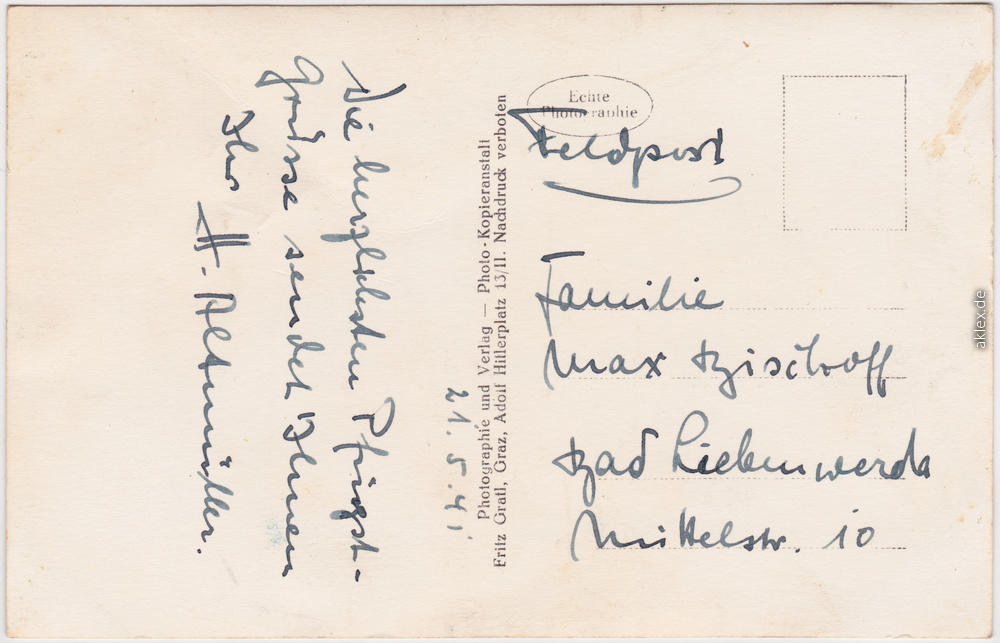 Die herzlichsten Pfingst-
Grüsse sendet Ihnen
Ihr H. Altmüller.
21.5.41
Photographie und Verlag — Photo-Kopieranstalt
Fritz Gratl, Graz, Adolf Hitlerplatz 13/II. Nachdruck verboten
Echte
Photographie
Feldpost
Familie
Max Bischoff
Bad Liebenwerda
Mittelstr. 10
aklex.de